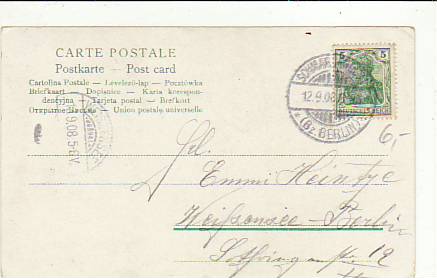 CARTE POSTALE
Postkarte – Post card
Cartolina Postale – Levelező-lap – Pocztówka
Briefkaart – Dopisnice – Karta korespon-
dencyjna – Tarjeta postal – Brefkort
Открытое Письмо – Union postale universelle
12.9.08
(Bz. BERLIN)
5
9.08.5-6V.
6,-
Emma Heintze
Weißensee-Berlin
Lothringenstr. 19